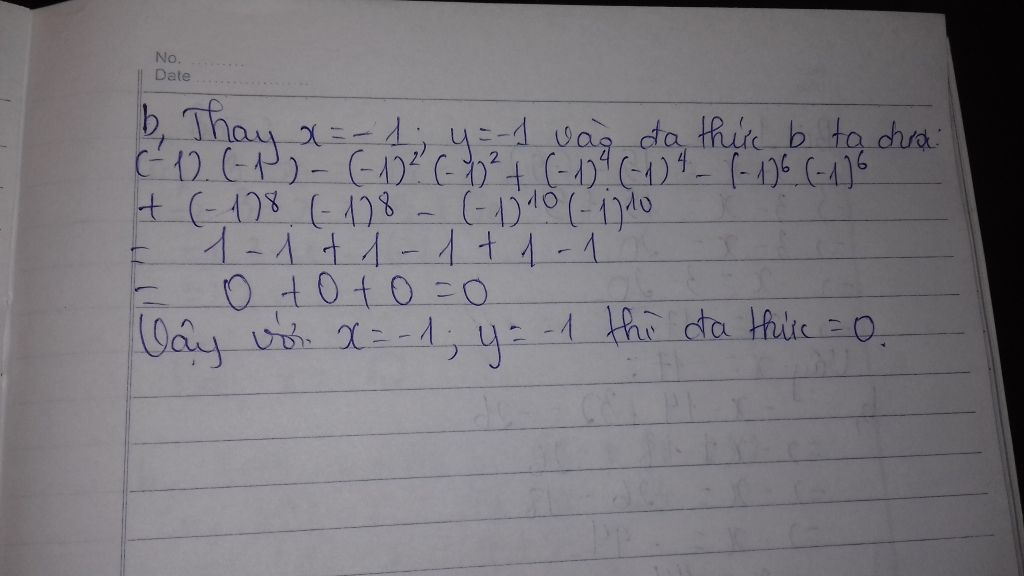 No. .........
Date ...................
b, Thay x = -1; y = -1 vào đa thức b ta được:
(-1).(-1) - (-1)².(-1)² + (-1)⁴(-1)⁴ - (-1)⁶.(-1)⁶
+ (-1)⁸.(-1)⁸ - (-1)¹⁰.(-1)¹⁰
= 1 - 1 + 1 - 1 + 1 - 1
= 0 + 0 + 0 = 0
Vậy với x = -1; y = -1 thì đa thức = 0.